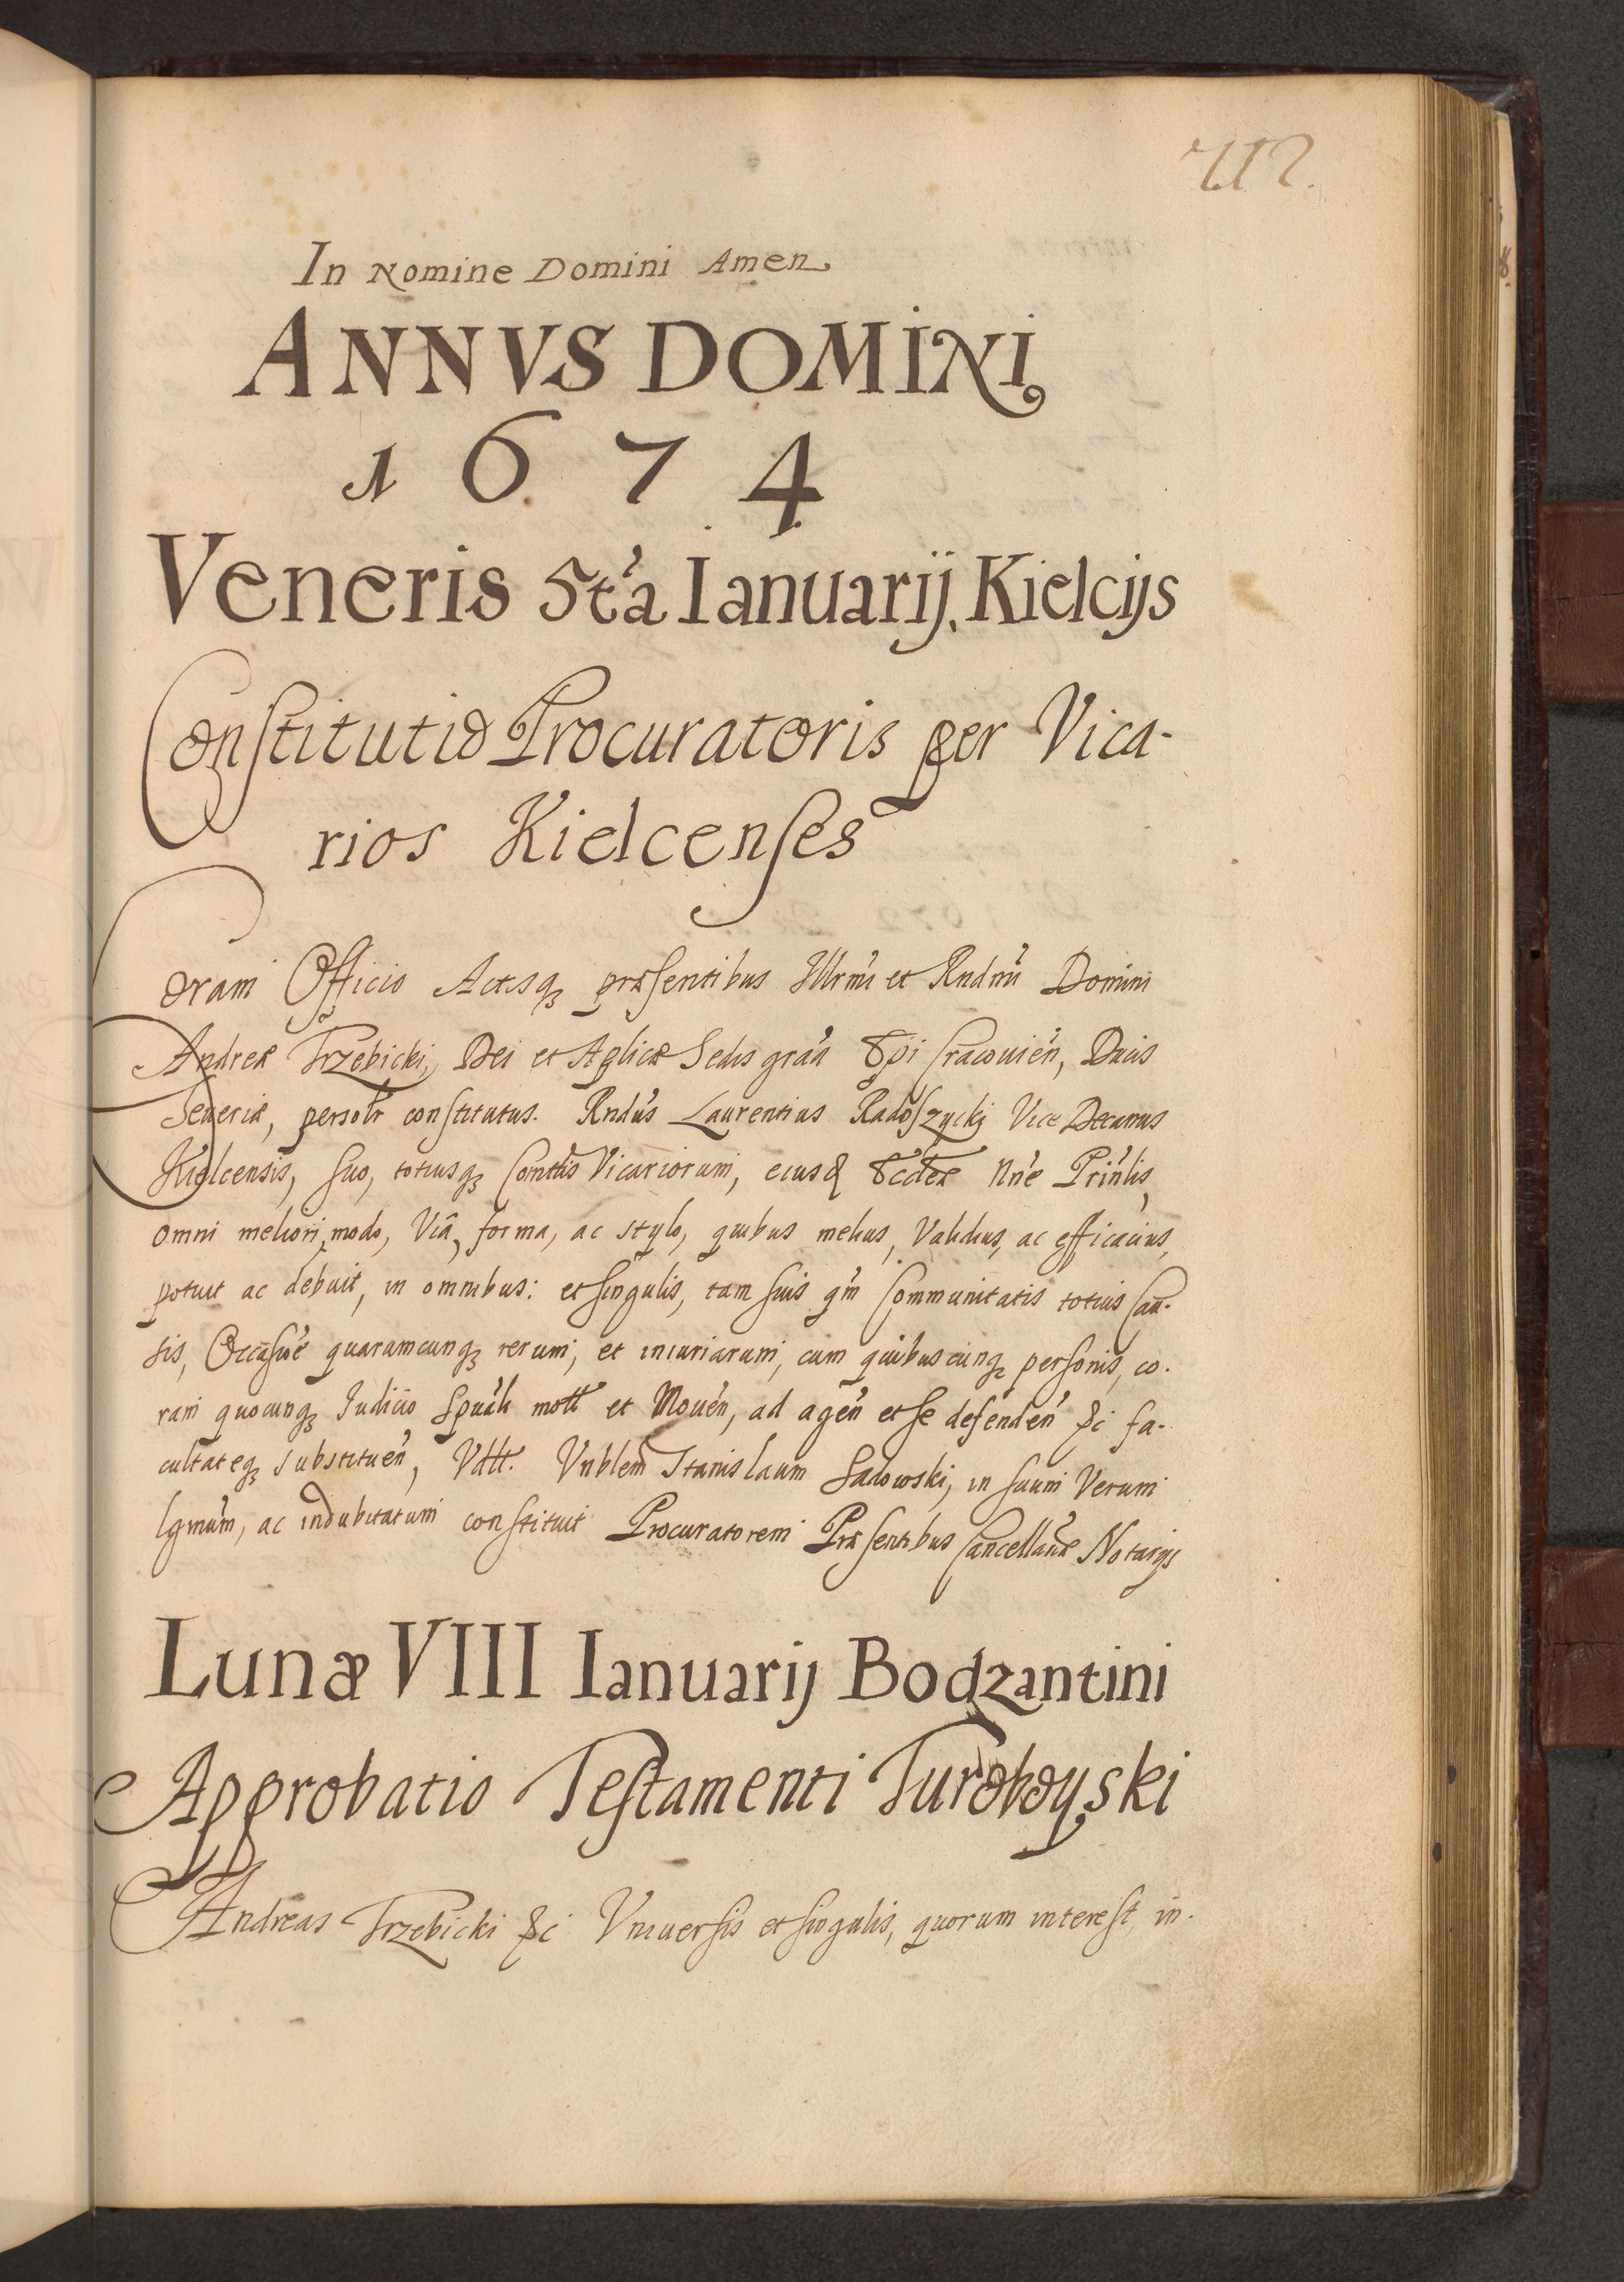 In Nomine Domini Amen
ANNVS DOMINI
1674
Veneris 5ta Ianuarij, Kielcijs
Constitutio Procuratoris per Vica-
rios Kielcenses
Coram Officio Actisq3 præsentibus Illrmi et Rndmi Domini
Andreæ Trzebicki, Dei et Aplicæ Sedis gra'a Epi Cracouien, Ducis
Seueriæ, persolr constitutus. Rndus Laurentius Radoszycki Vice Decanus
Kielcensis, suo, totiusq3 Comttis Vicariorum, eiusd Eccleæ Nne Prinlis,
omni meliori modo, Viâ, forma, ac stylo, quibus melius, Validius, ac efficacius,
potuit ac debuit, in omnibus: et singulis, tam suis qm Communitatis totius Cau-
sis, Occasioe quaramcunq3 rerum, et iniuriarum, cum quibuscunq3 personis, co-
ram quocunq3 Iudicio Spuali mott et Mouen, ad agen et se defenden &c fa-
cultateq3 substituen, Vdtt. Vnblem Stanislaum Sadowski, in suum Verum
lgmum, ac indubitatum constituit Procuratorem Præsentibus Cancellariæ Notarijs
Lunæ VIII Ianuarij Bodzantini
Approbatio Testamenti Turoboyski
Andreas Trzebicki &c Vniuersis et singulis, quorum interest, in-